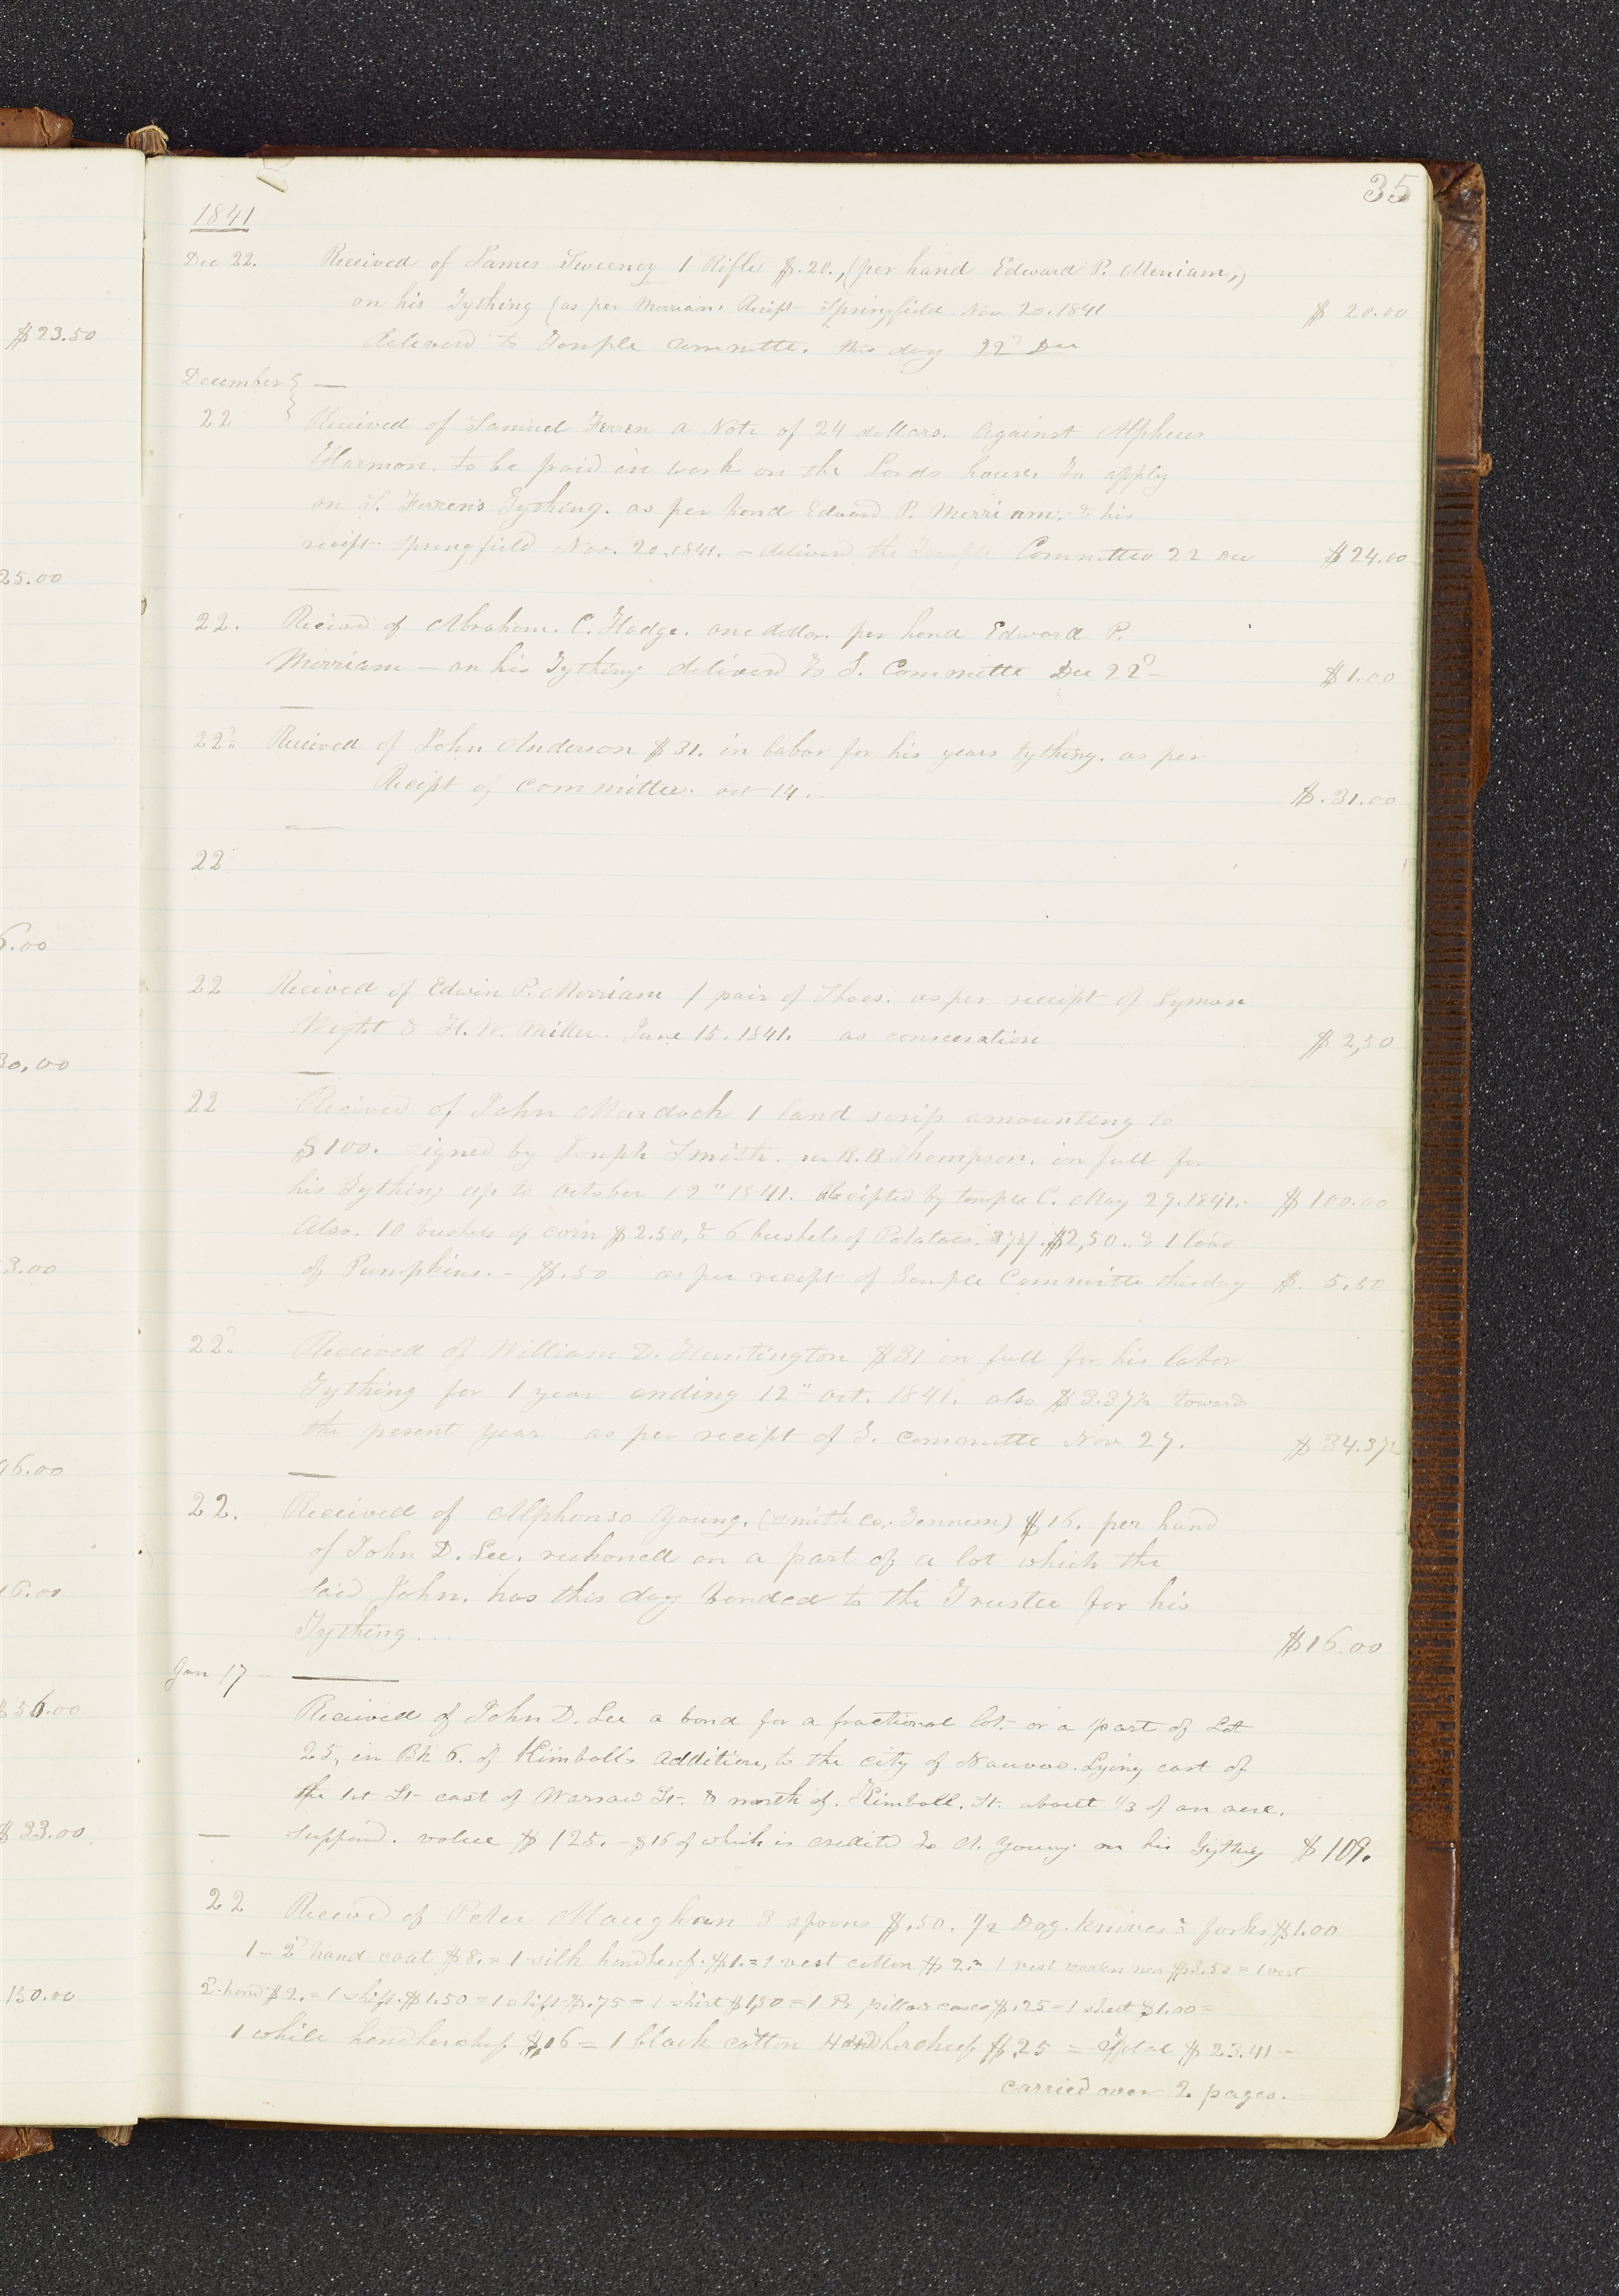 35
1841
Dec 22. Received of James Sweeney 1 Rifle $.20., (per hand Edward P. Merriam,)
on his Tything (as per Merriam. Reciept Springfield. Nov 20. 1841 $ 20.00
deleverd to Temple Committe. this day 22d Dec
December
22 Received of Samuel Ferren a Note of 24 dollars. Against Alpheus
Harmon. to be paid in work on the Lords house. To apply
on S. Ferren's Tything. as per hand Edward P. Merriam. & his
receipt Springfield Nov. 20. 1841. – deliverd the Temple Committee 22 Dec $24.00
22. Received of Abraham. C. Hodge. one dollar. per hand Edward P.
Merriam – on his Tything deliverd to T. Committe Dec 22d – $1.00
22d. Received of John Anderson $31. in labor for his years tything. as per
Receipt of Committee. oct 14. – $.31.00
22
22 Recieved of Edwin P. Merriam 1 pair of Shoes. as per receipt of Lyman
Wight & H. W. Miller. June 15. 1841. as consecration $ 2,50
22 Received of John Murdock 1 land scrip amounting to
$100. signed by Joseph Smith. R. B Thompson. in full for
his Tything up to October 12" 1841. Receipted by temple C. May 29. 1841. $ 100.00
Also. 10 bushels of corn $2.50. & 6 bushels of Potatoes. $2,50. & 1 load
of Pumpkins. – $.50 as per receipt of Temple Committe this day $. 5.50
22d. Received of William D. Huntington $31 in full for his labor
Tything for 1 year ending 12" oct. 1841. also $3.37½ toward
the present year as per receipt of T. Committe Nov 27. $ 34.37½
22. Received of Alphonso Young. (Smith Co. Tennessee) $16. per hand
of John D. Lee. reckoned on a part of a lot which the
said John, has this day bonded to the Trustee for his
Tything... $16.00
Jan 17 –
Received of John D. Lee a bond for a fractional lot. or a part of Lot
25, in Bk 6. of Kimballs addition, to the city of Nauvoo. Lying east of
the 1st St– east of Warsaw St. & north of. Kimball. St. about 1/3 of an acre.
supposed. value $ 125. – $16 of which is credited to A. Young on his Tything $ 109.
22 Received of Peter Maughan 3 spoons $.50. 1/2 Doz. knives & forks $1.00
1 – 2d hand coat $8. = 1 silk handkerchf. $1. = 1 vest cotton $2. = 1 vest woolen new $3.50 = 1 vest
2d. hand $2. = 1 shift. $1.50 = 1 shift $.75 = 1 shirt $1,50 = 1 Pr pillow cases $.25 = 1 sheet $1.00 =
1 white handkerchief $,16 = 1 black cotton Handkercheef $,25 = Total $ 23.41 –
carried over 2 pages.
$23.50
25.00
6.00
30,00
3.00
96.00
16.00
$36.00
$33.00
150.00